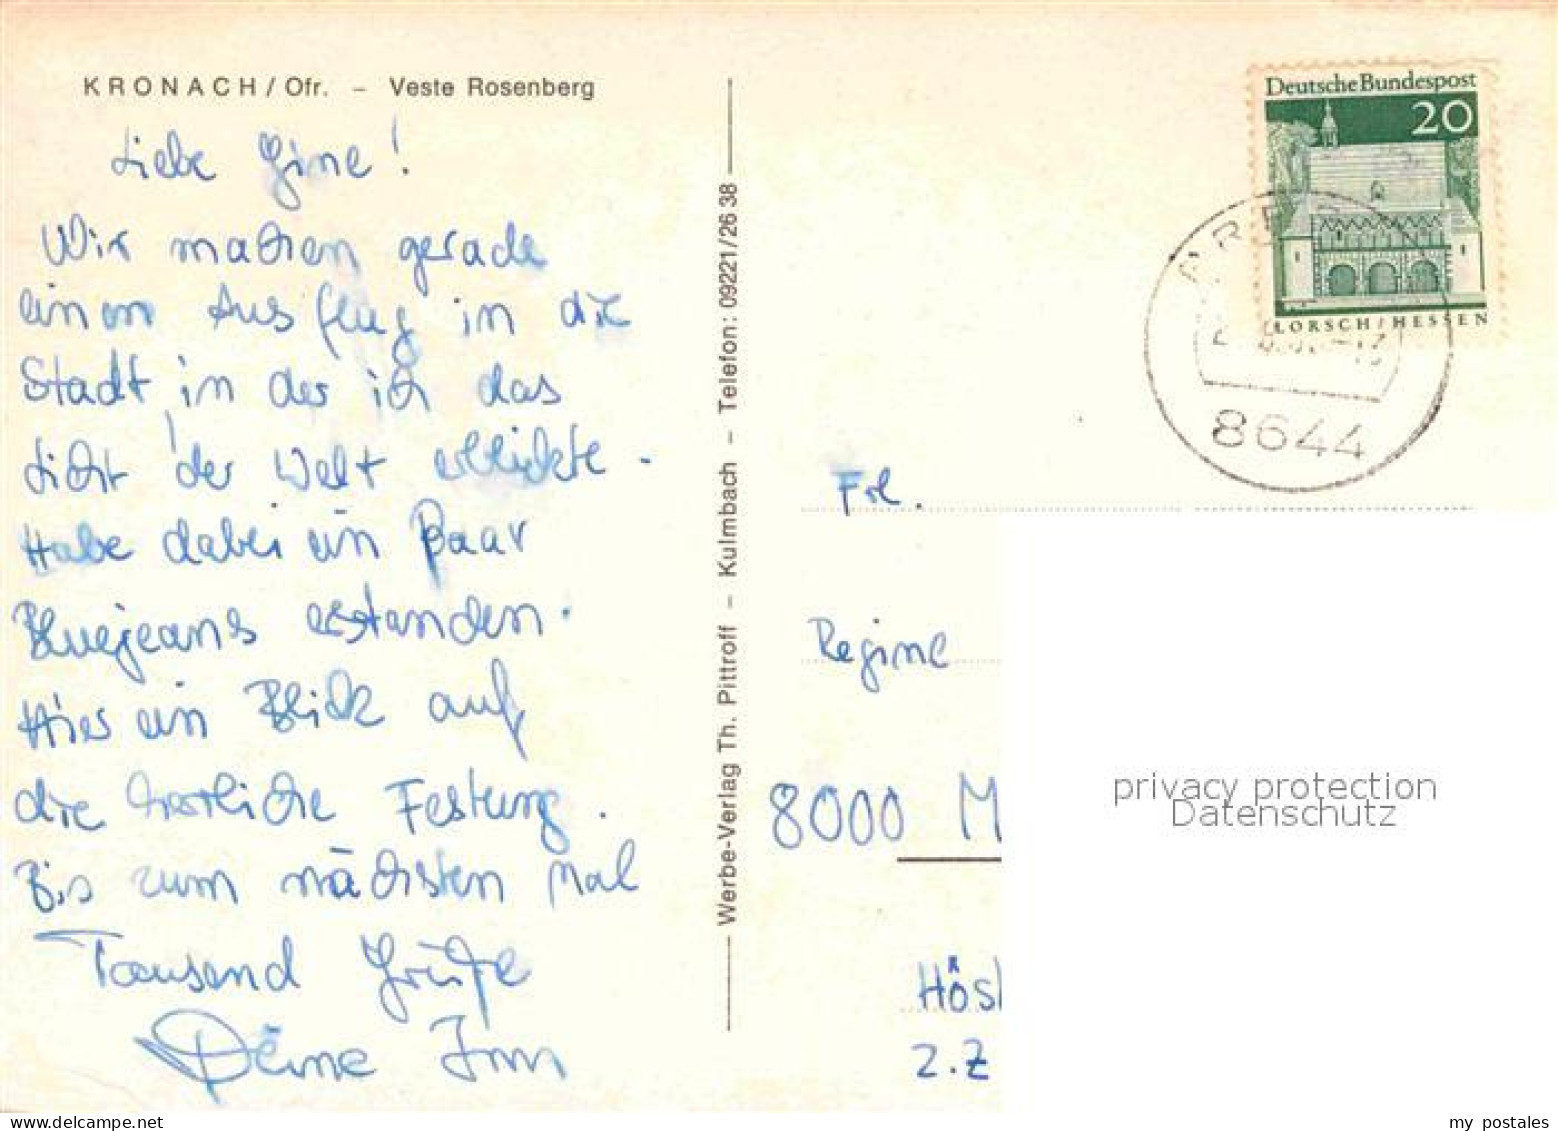 KRONACH / Ofr. – Veste Rosenberg
Liebe Gine!
Wir machen gerade
einen Ausflug in die
Stadt, in der ich das
Licht der Welt erblickte.
Habe dabei ein Paar
Bluejeans erstanden.
Hier ein Blick auf
die herrliche Festung.
Bis zum nächsten Mal
Tausend Grüße
Deine
Werbe-Verlag Th. Pittroff – Kulmbach – Telefon: 09221/26 38
Deutsche Bundespost
20
LORSCH/HESSEN
8644
Frl.
Regine
8000 M
Hösl
z.Z
privacy protection
Datenschutz
my postales